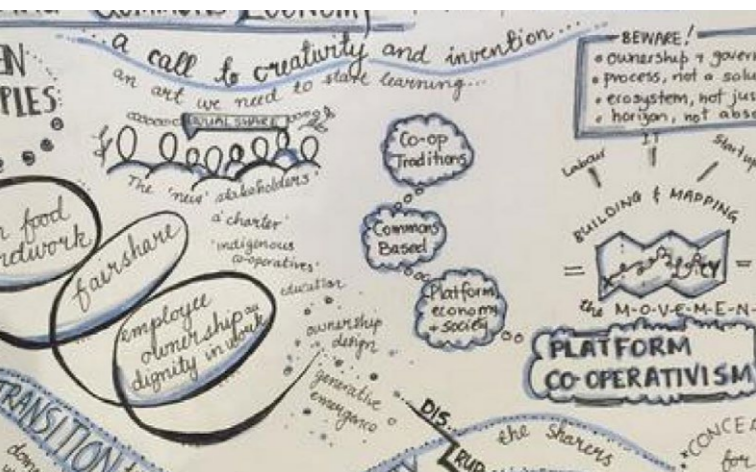 COMMONS ECONOMY
... a call to creativity and invention ...
an art we need to start learning...
EN
PLES:
EQUAL SHARE
The 'new' stakeholders'
a 'charter'
'indigenous
co-operatives'
education
ownership
design
generative
emergence
food
fairshare
employee
ownership
dignity in work
TRANSITION
Co-op
Traditions
Commons
Based
Platform
economy
+ society
BEWARE!
• ownership + govern
• process, not a solu
• ecosystem, not jus
• horizon, not abso
Labour
IT
Startup
BUILDING & MAPPING
the M-O-V-E-M-E-N-
PLATFORM
CO-OPERATIVISM
DIS...
RUP
the sharers
*CONCE
for